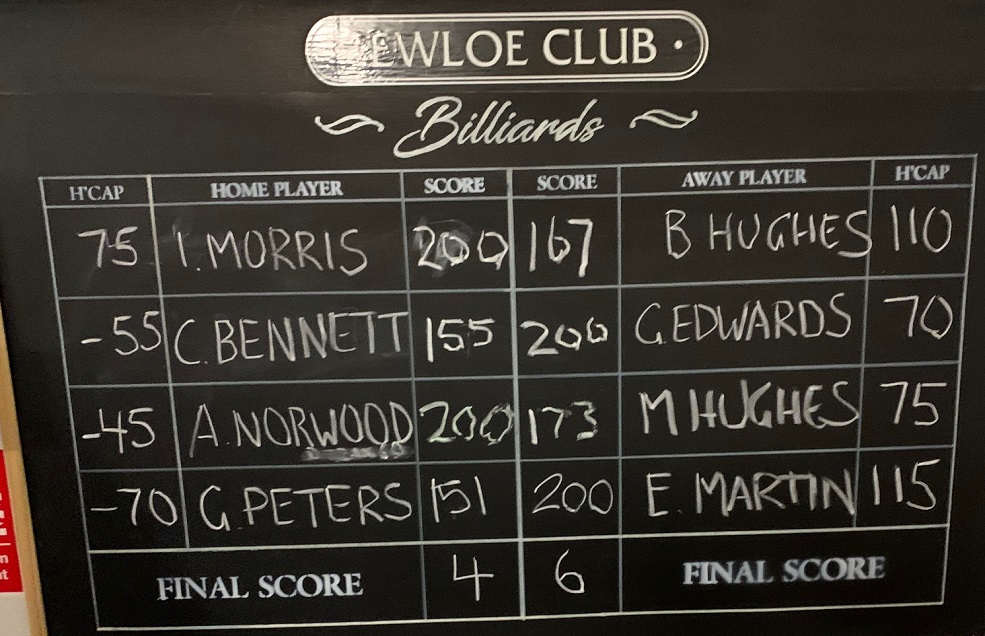 EWLOE CLUB ·
Billiards
H'CAP HOME PLAYER SCORE SCORE AWAY PLAYER H'CAP
75 I.MORRIS 200 167 B HUGHES 110
-55 C.BENNETT 155 200 G.EDWARDS 70
-45 A.NORWOOD 200 173 M HUGHES 75
-70 G.PETERS 151 200 E.MARTIN 115
FINAL SCORE 4 6 FINAL SCORE